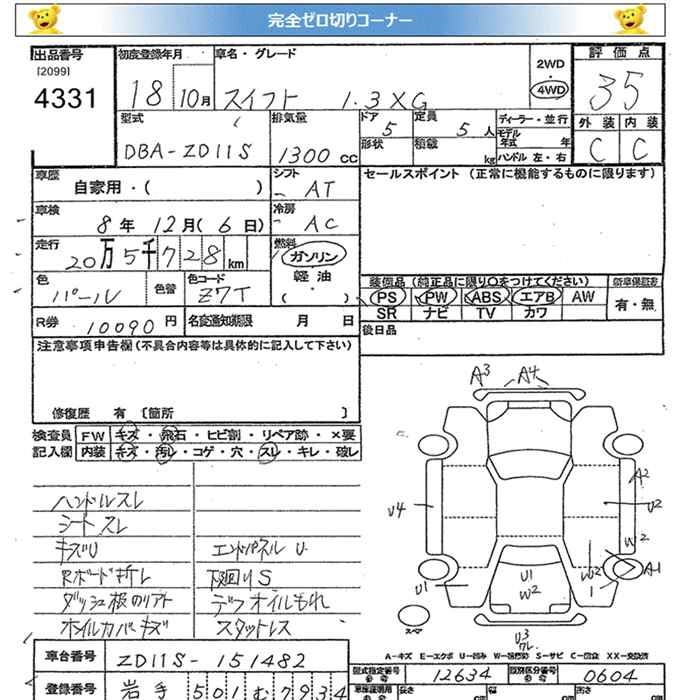 完全ゼロ切りコーナー
出品番号
[2099]
4331
初度登録年月
18 10月
車名・グレード
スイフト 1.3XG
2WD
・
4WD
評価点
35
外装 内装
C C
型式
DBA-ZD11S
排気量
1300 cc
ドア
5
形状
定員
5 人
積載
kg
ディーラー・並行
モデル
年式 年
ハンドル 左・右
車歴
自家用・( )
シフト
AT
セールスポイント (正常に機能するものに限ります)
車検
8年 12月( 6日)
冷房
AC
走行
20万5千728km
燃料
ガソリン
軽油
( ・ )
色
パール
色替
色コード
Z7T
装備品(純正品に限り○をつけてください)
PS PW ABS エアB AW
SR ナビ TV カワ
新車保証書
有・無
R券 10090 円
名変通知期限 月 日
後日品
注意事項申告欄(不具合内容等は具体的に記入して下さい)
修復歴 有 [箇所 ]
検査員
記入欄
FW キズ・飛石・ヒビ割・リペア跡・×要
内装 キズ・汚レ・コゲ・穴・スレ・キレ・破レ
ハンドルスレ
シートスレ
キズU
Rボード折レ
ダッシュ板のリアト
ホイルカバーキズ
エンドパネル U
下廻りS
デフオイルもれ
スタットレス
A3 A4
U4
A2
U2
W2
A1
U1
U1
W2
W2
1
U3
スペア
A-キズ E-エクボ U-凹み S-サビ
車台番号 ZD11S-151482
型式指定番号 12634
類別区分番号 0604
登録番号 岩手 501 む 7934
長さ
幅
高さ